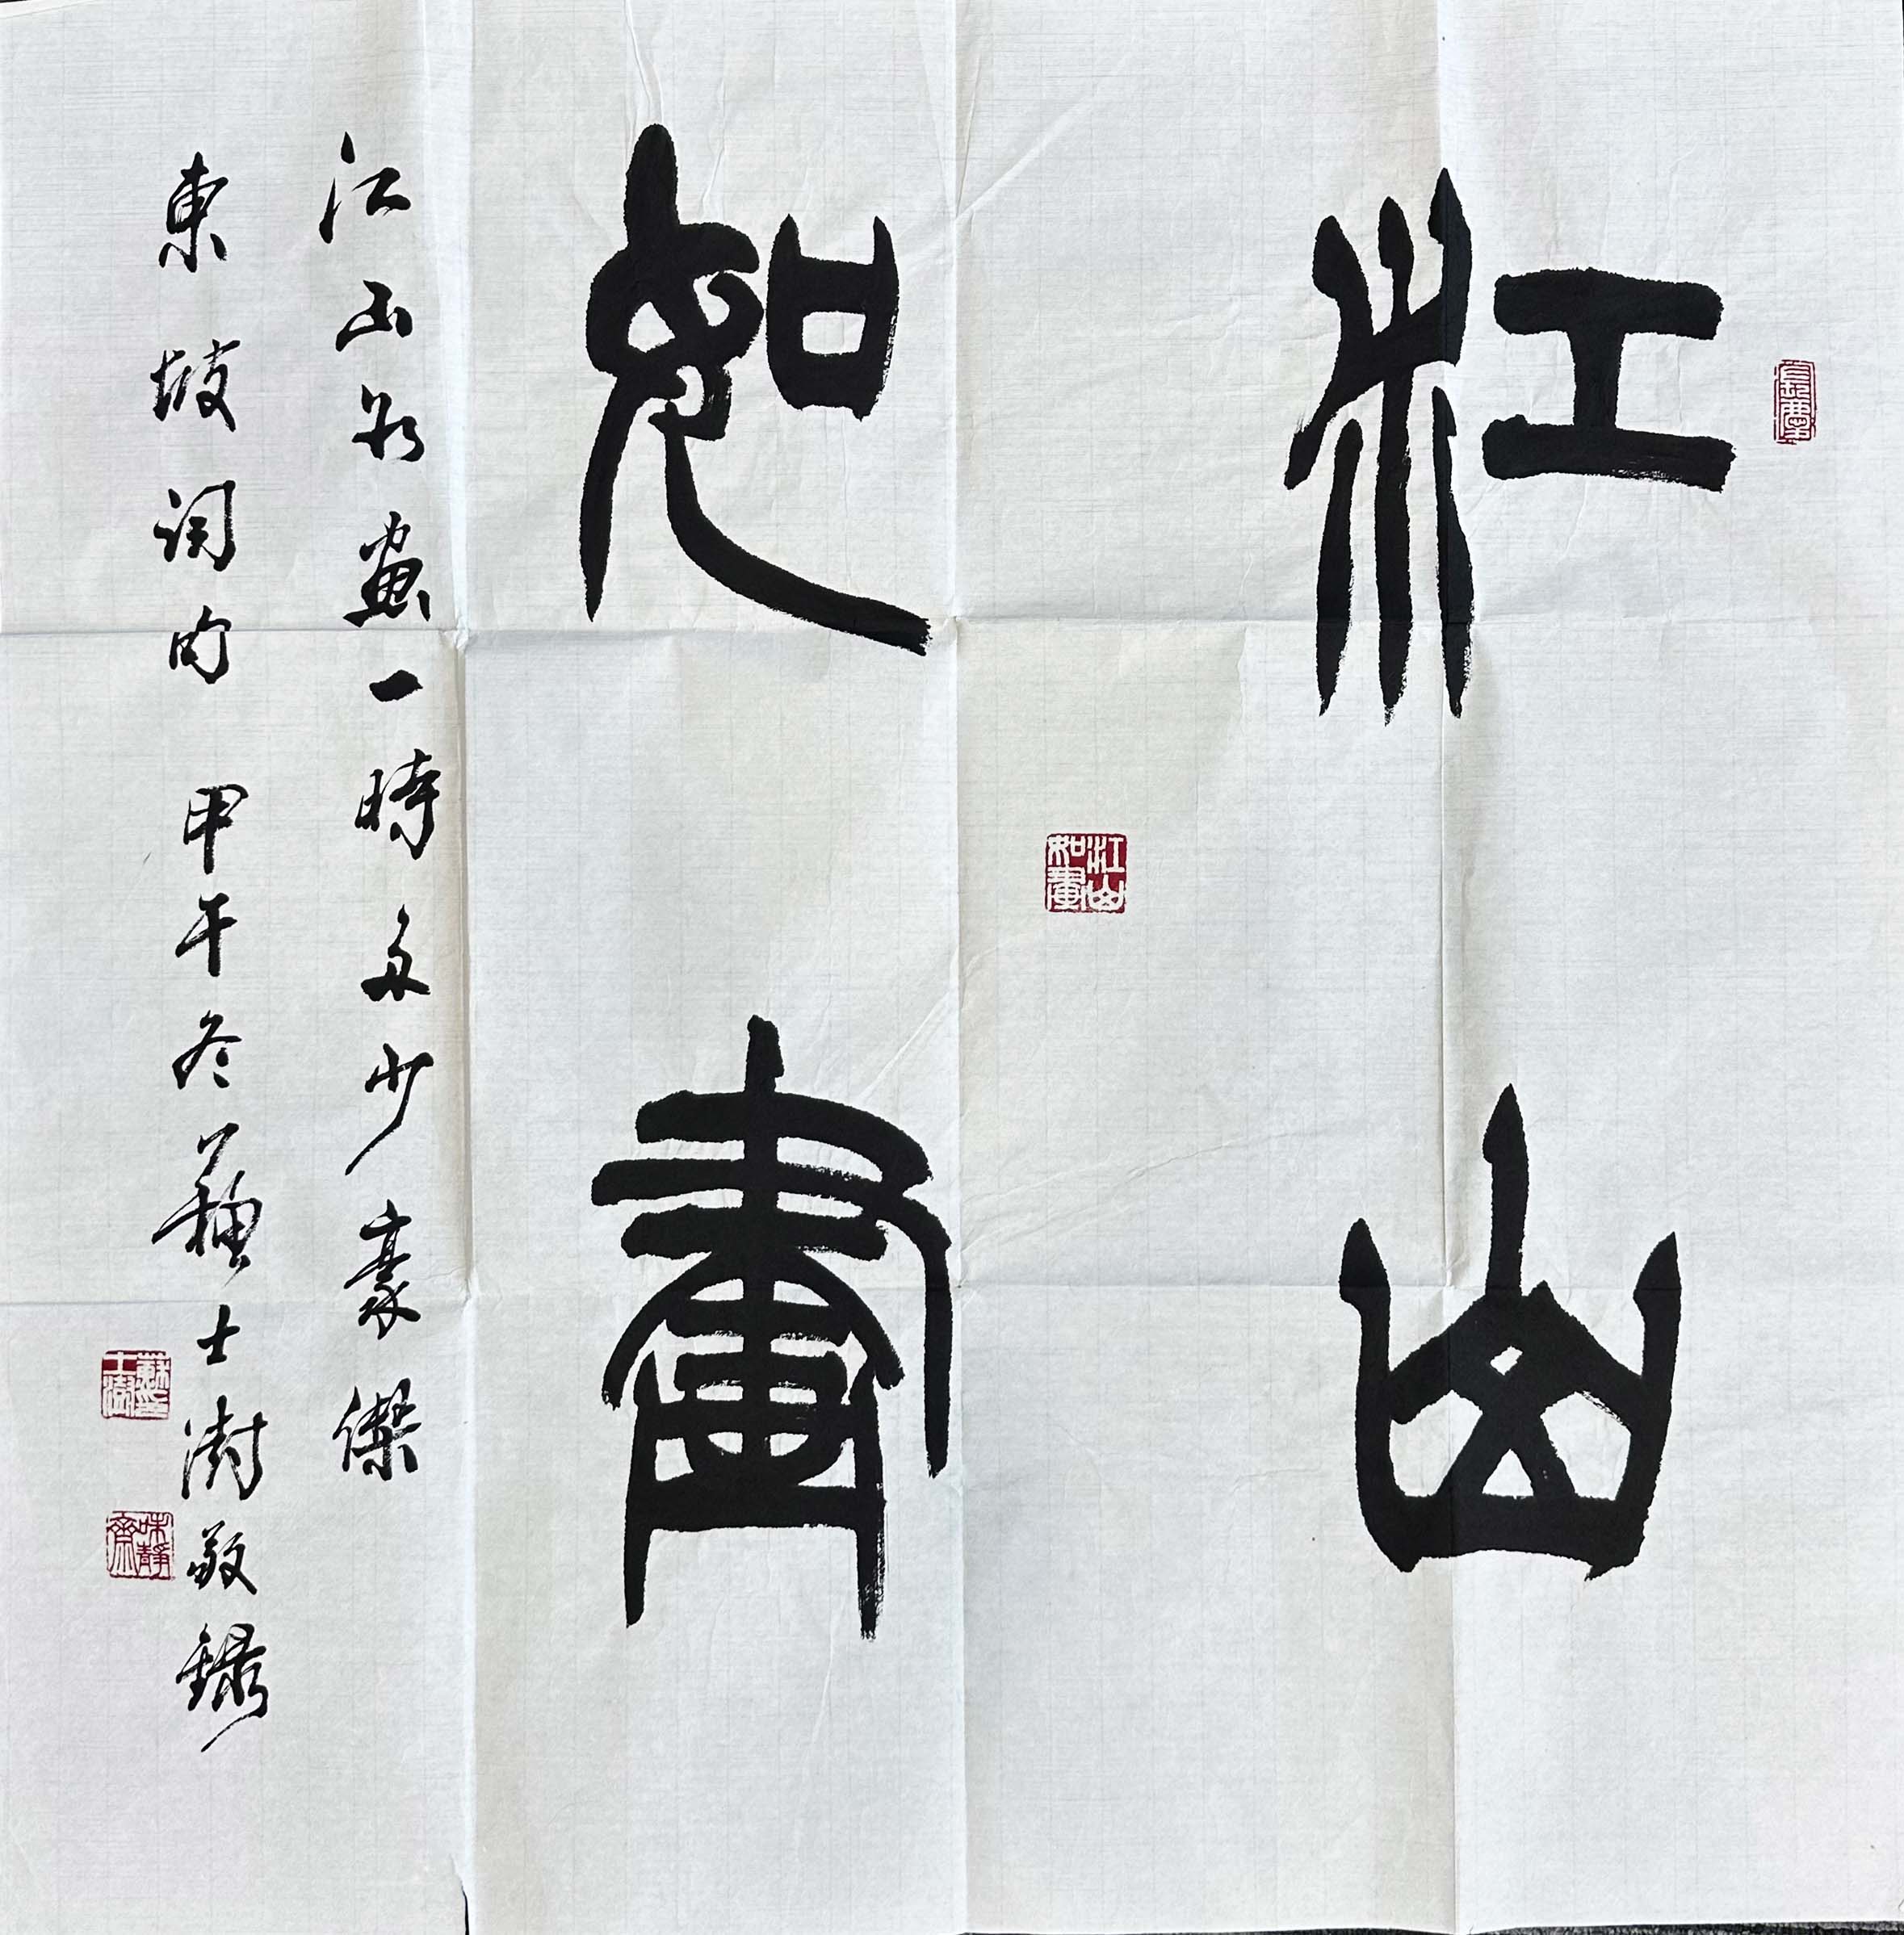 江山
如畫
江山如畫
江山如畫一時多少豪傑
東坡詞句 甲午冬蘇士澍敬錄
蘇士澍印
味靜齋